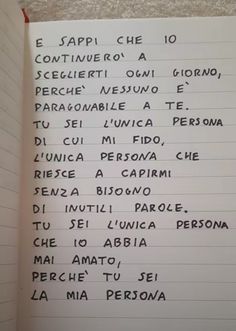 E SAPPI CHE IO
CONTINUERO' A
SCEGLIERTI OGNI GIORNO,
PERCHE' NESSUNO E'
PARAGONABILE A TE.
TU SEI L'UNICA PERSONA
DI CUI MI FIDO,
L'UNICA PERSONA CHE
RIESCE A CAPIRMI
SENZA BISOGNO
DI INUTILI PAROLE.
TU SEI L'UNICA PERSONA
CHE IO ABBIA
MAI AMATO,
PERCHE' TU SEI
LA MIA PERSONA